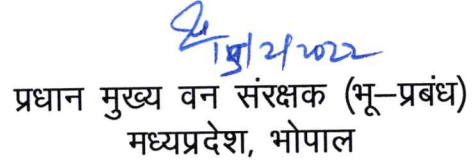 2/2022
प्रधान मुख्य वन संरक्षक (भू–प्रबंध)
मध्यप्रदेश, भोपाल